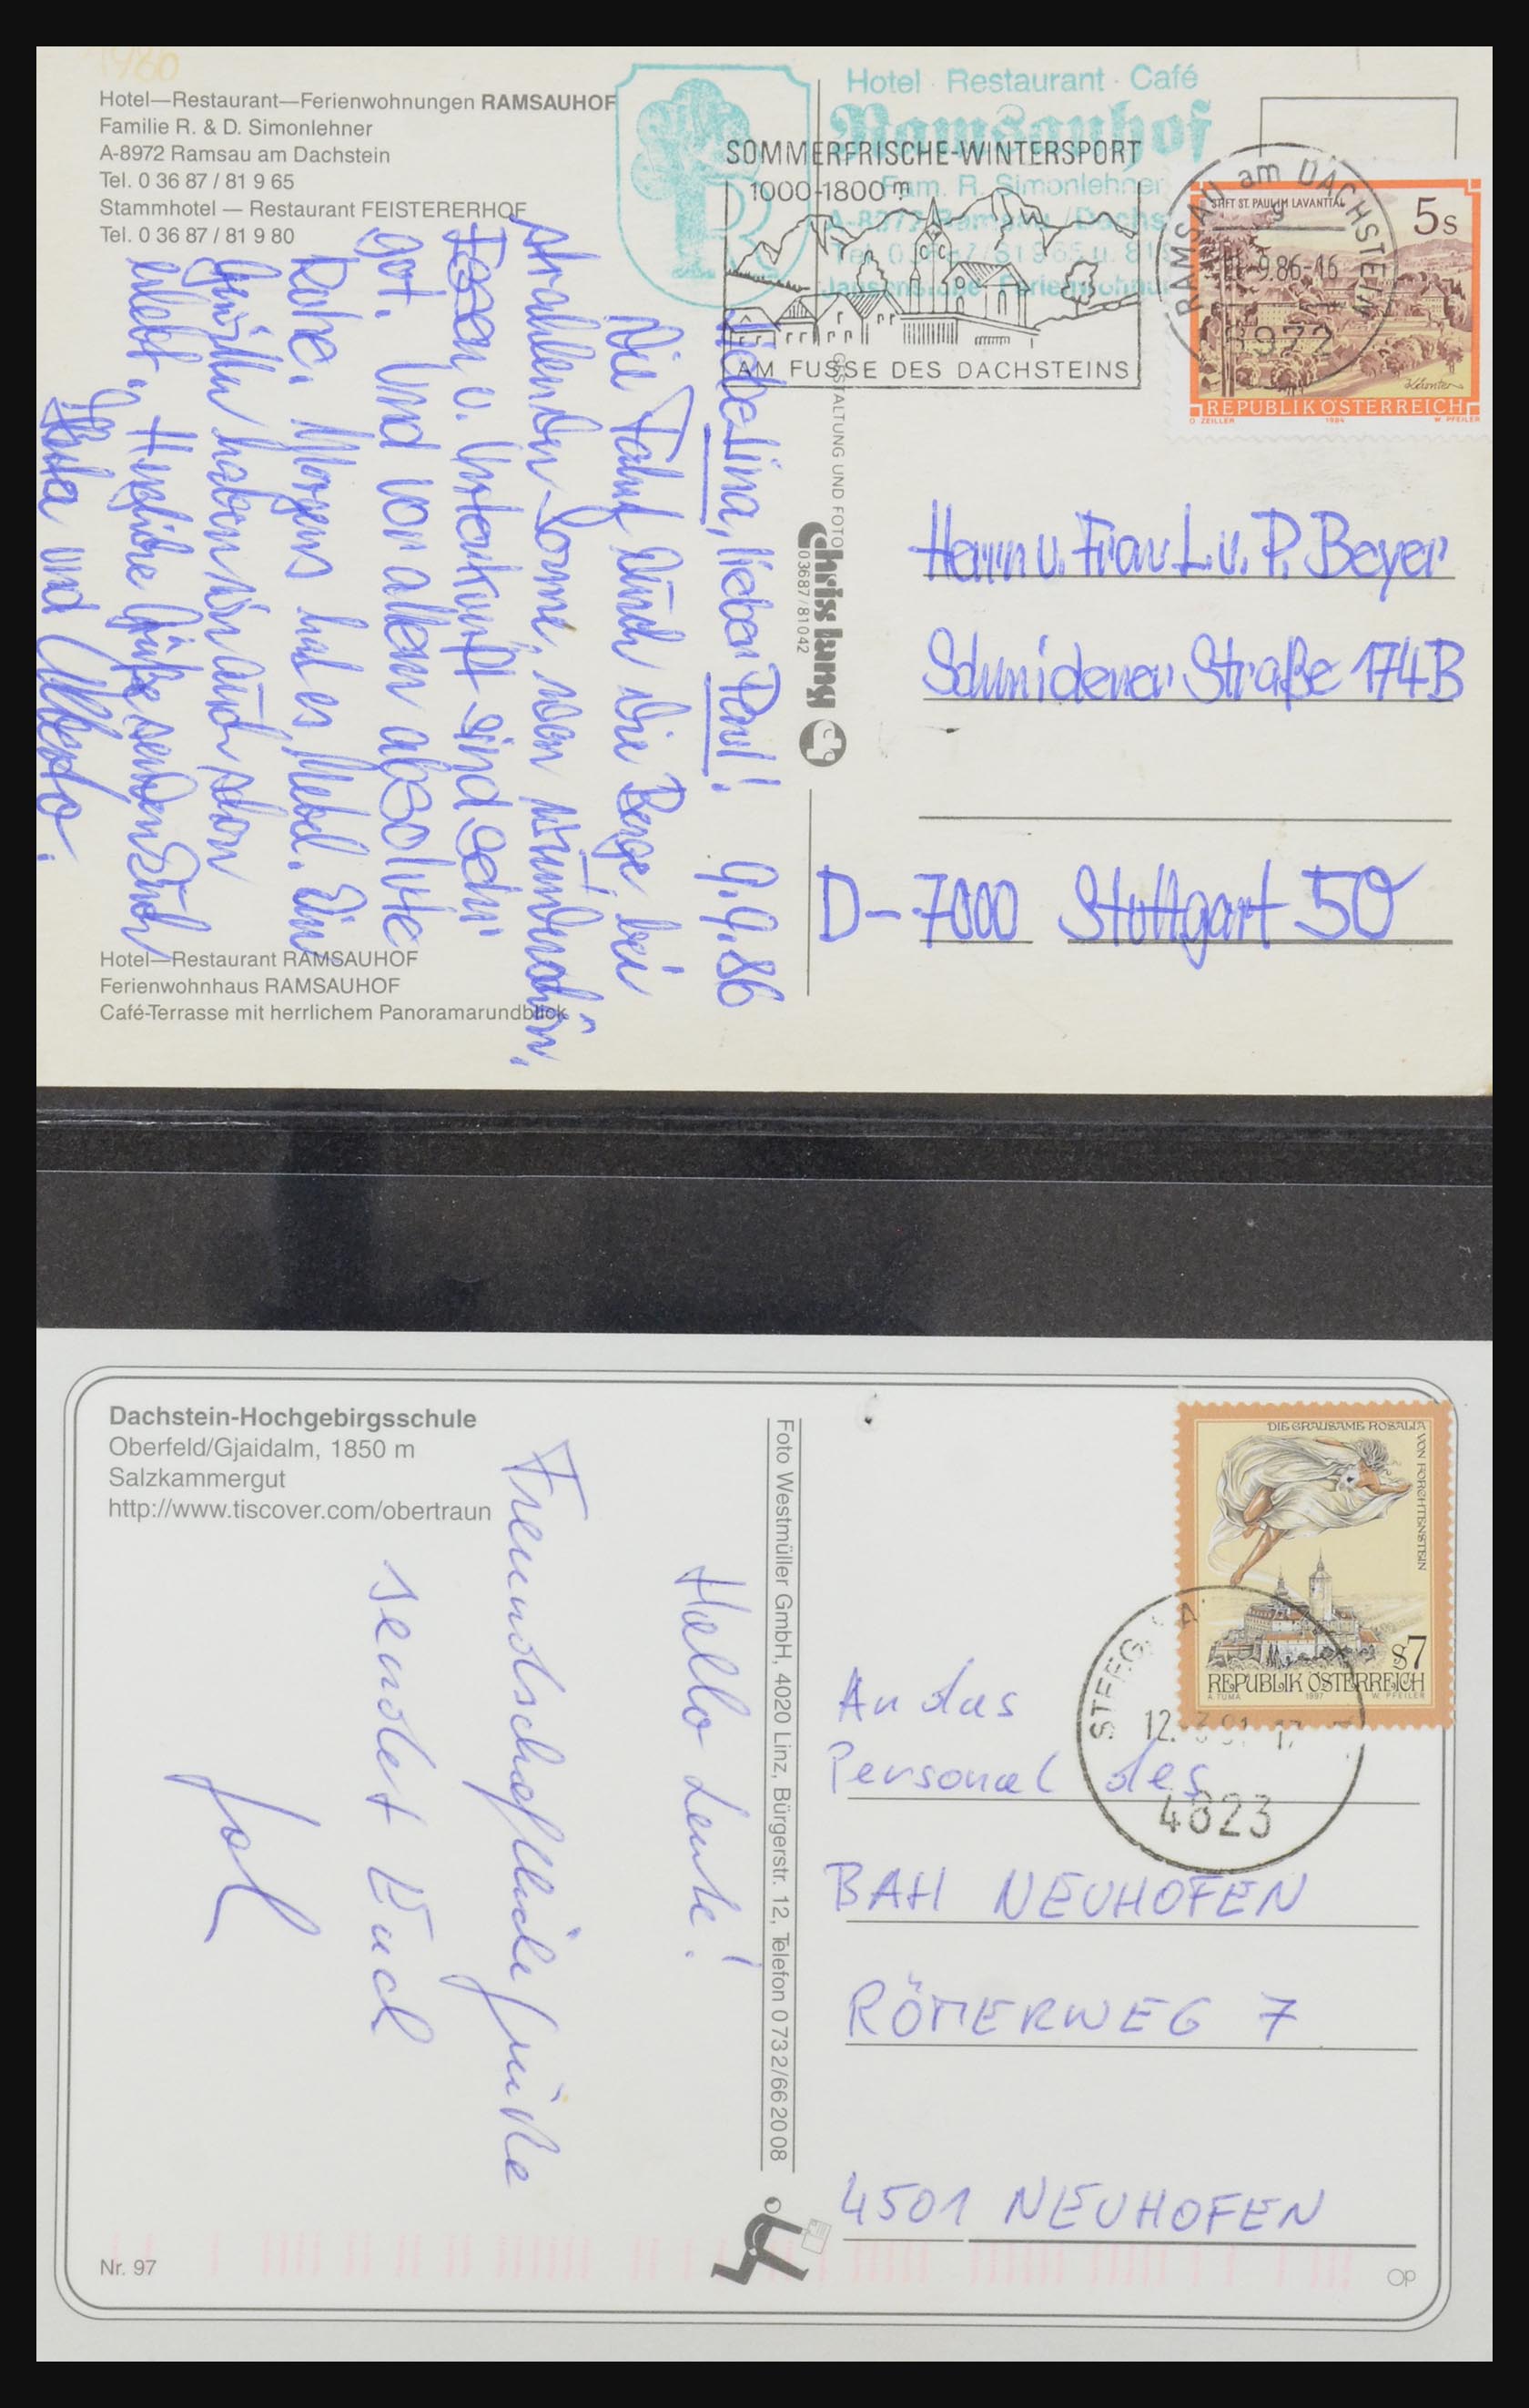 1960
Hotel—Restaurant—Ferienwohnungen RAMSAUHOF
Familie R. & D. Simonlehner
A-8972 Ramsau am Dachstein
Tel. 0 36 87 / 81 9 65
Stammhotel — Restaurant FEISTERERHOF
Tel. 0 36 87 / 81 9 80
Hotel · Restaurant · Café
Ramsauhof
Fam. R. Simonlehner
SOMMERFRISCHE-WINTERSPORT
1000-1800 m
AM FUSSE DES DACHSTEINS
RAMSAU am DACHSTEIN
9.86-16
8972
STIFT ST. PAUL IM LAVANTTAL
5s
REPUBLIK ÖSTERREICH
O ZEILLER 1984 W. PFEILER
Liebe Lina, lieber Paul! 9.9.86
Die Fahrt durch die Berge bei
strahlender Sonne, war wunderschön,
Essen u. Unterkunft sind sehr
gut. Und vor allem absolute
Ruhe. Morgens hat es Nebel. Ein
Gewitter haben wir auch schon
erlebt. Herzliche Grüße senden Euch
und
GESTALTUNG UND FOTO
Chriss Lung
03687/81042
Herrn u. Frau L. u. P. Beyer
Schmidener Straße 174B
D-7000 Stuttgart 50
Hotel—Restaurant RAMSAUHOF
Ferienwohnhaus RAMSAUHOF
Café-Terrasse mit herrlichem Panoramarundblick
Dachstein-Hochgebirgsschule
Oberfeld/Gjaidalm, 1850 m
Salzkammergut
http://www.tiscover.com/obertraun
Hallo Leute!
Freundschaftliche Grüße
sendet Euch
Foto Westmüller GmbH, 4020 Linz, Bürgerstr. 12, Telefon 0 732/66 20 08
DIE GRAUSAME ROSALIA
VON FORCHTENSTEIN
S7
REPUBLIK ÖSTERREICH
A. TUMA 1997 W. PFEILER
4823
An das
Personal des
BAH NEUHOFEN
RÖMERWEG 7
4501 NEUHOFEN
Nr. 97
Op